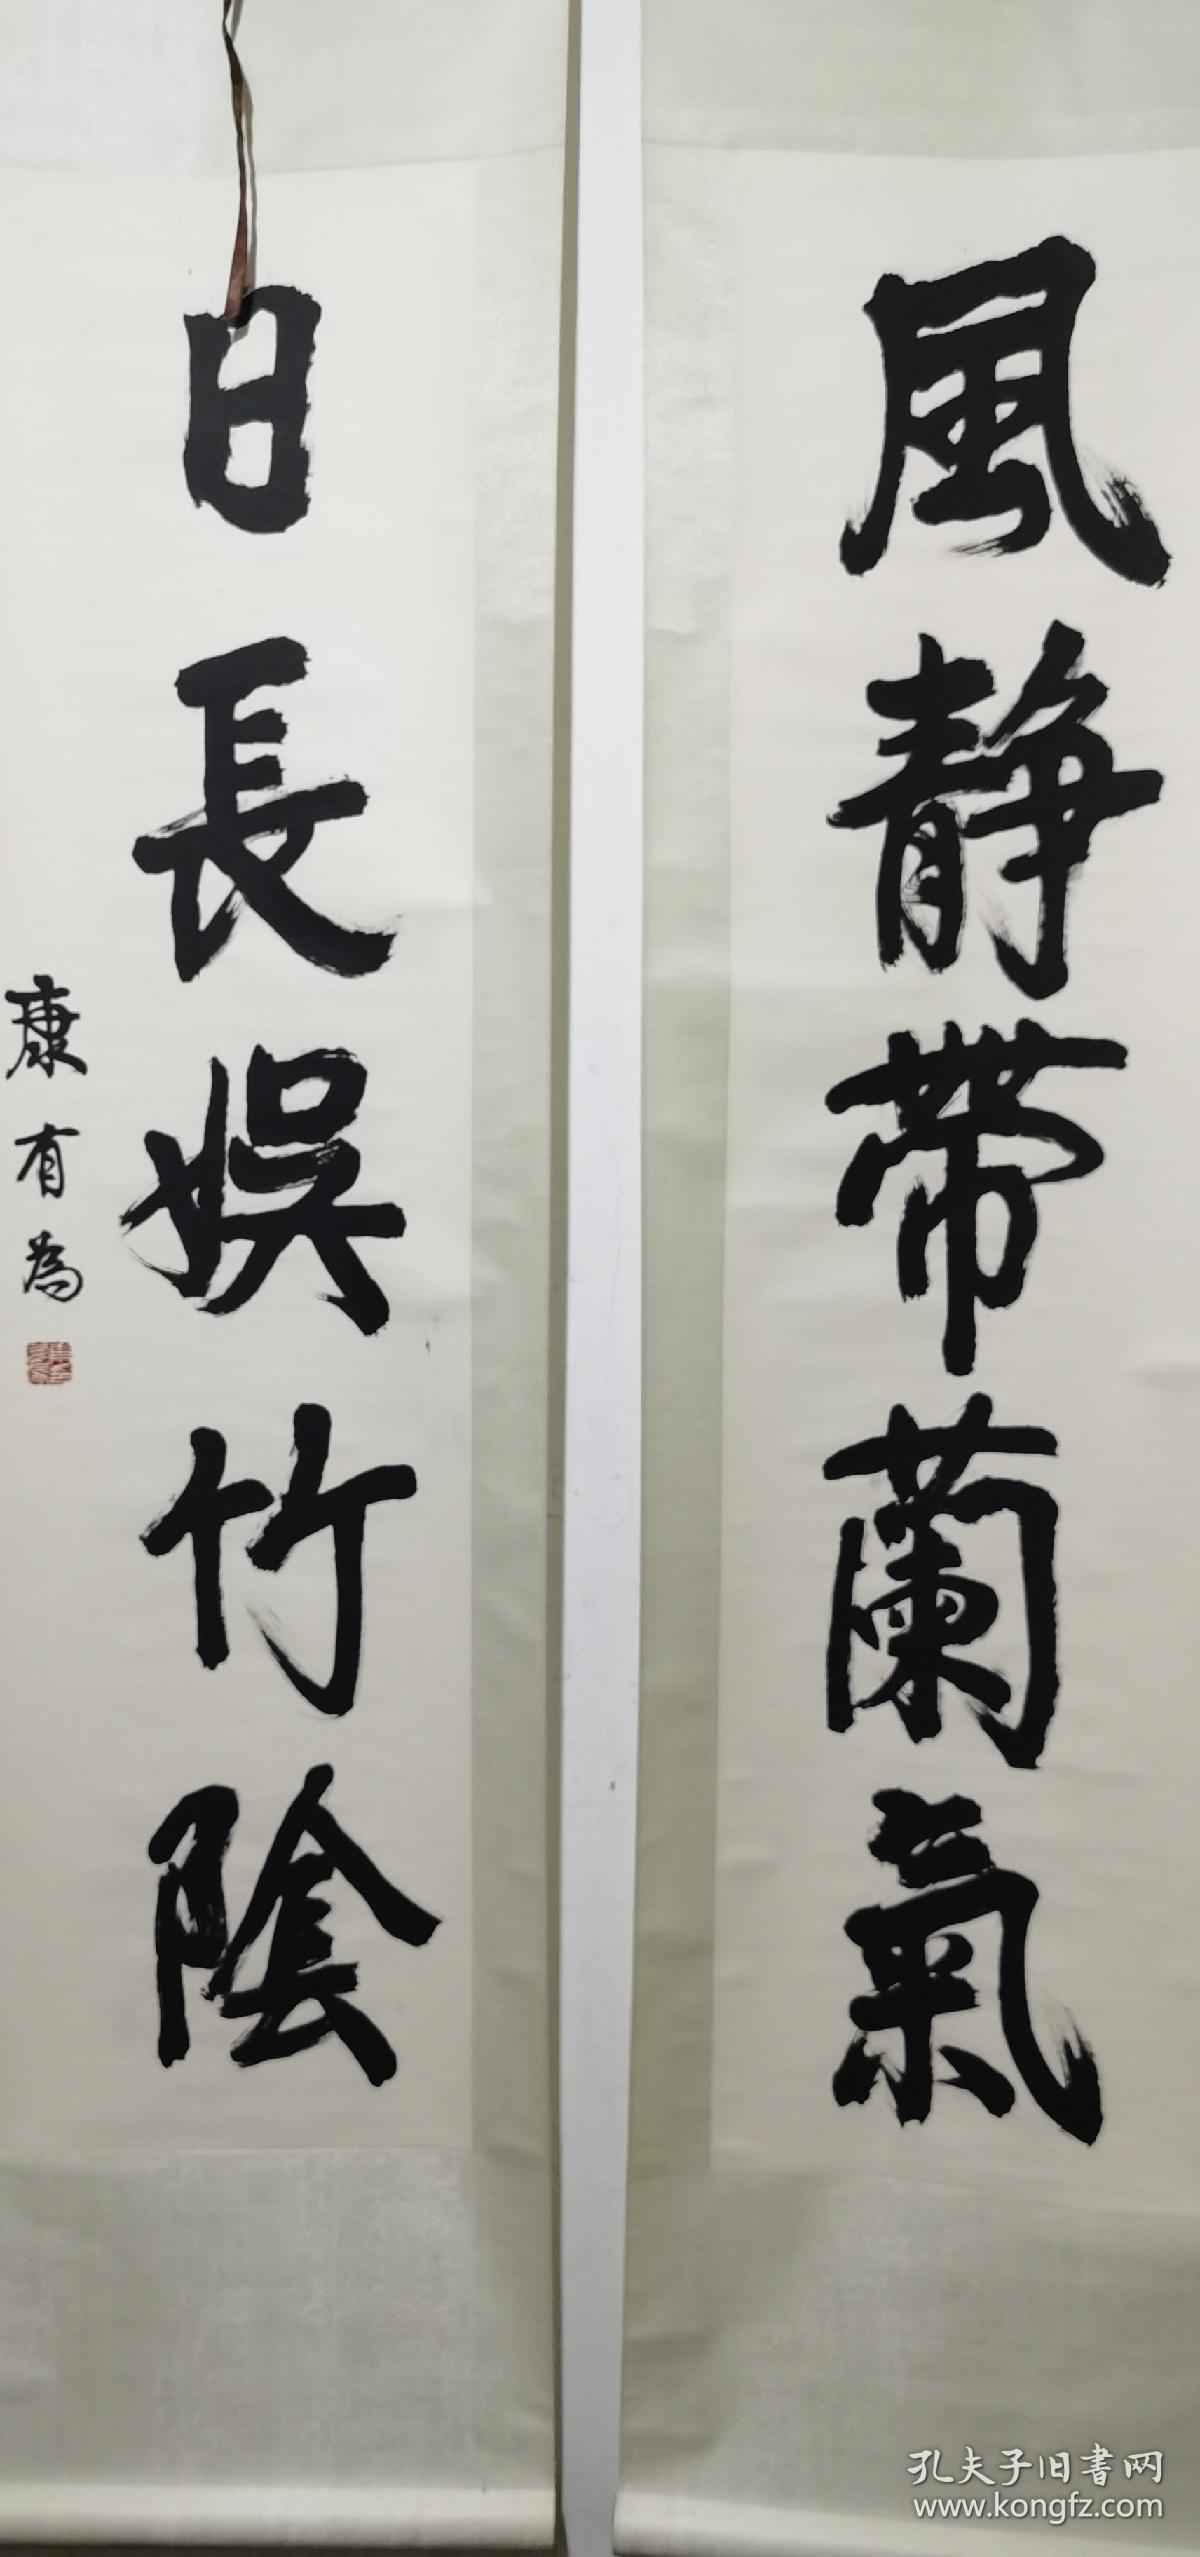 風静帶蘭氣
日長娛竹陰
康有為
孔夫子旧书网
www.kongfz.com